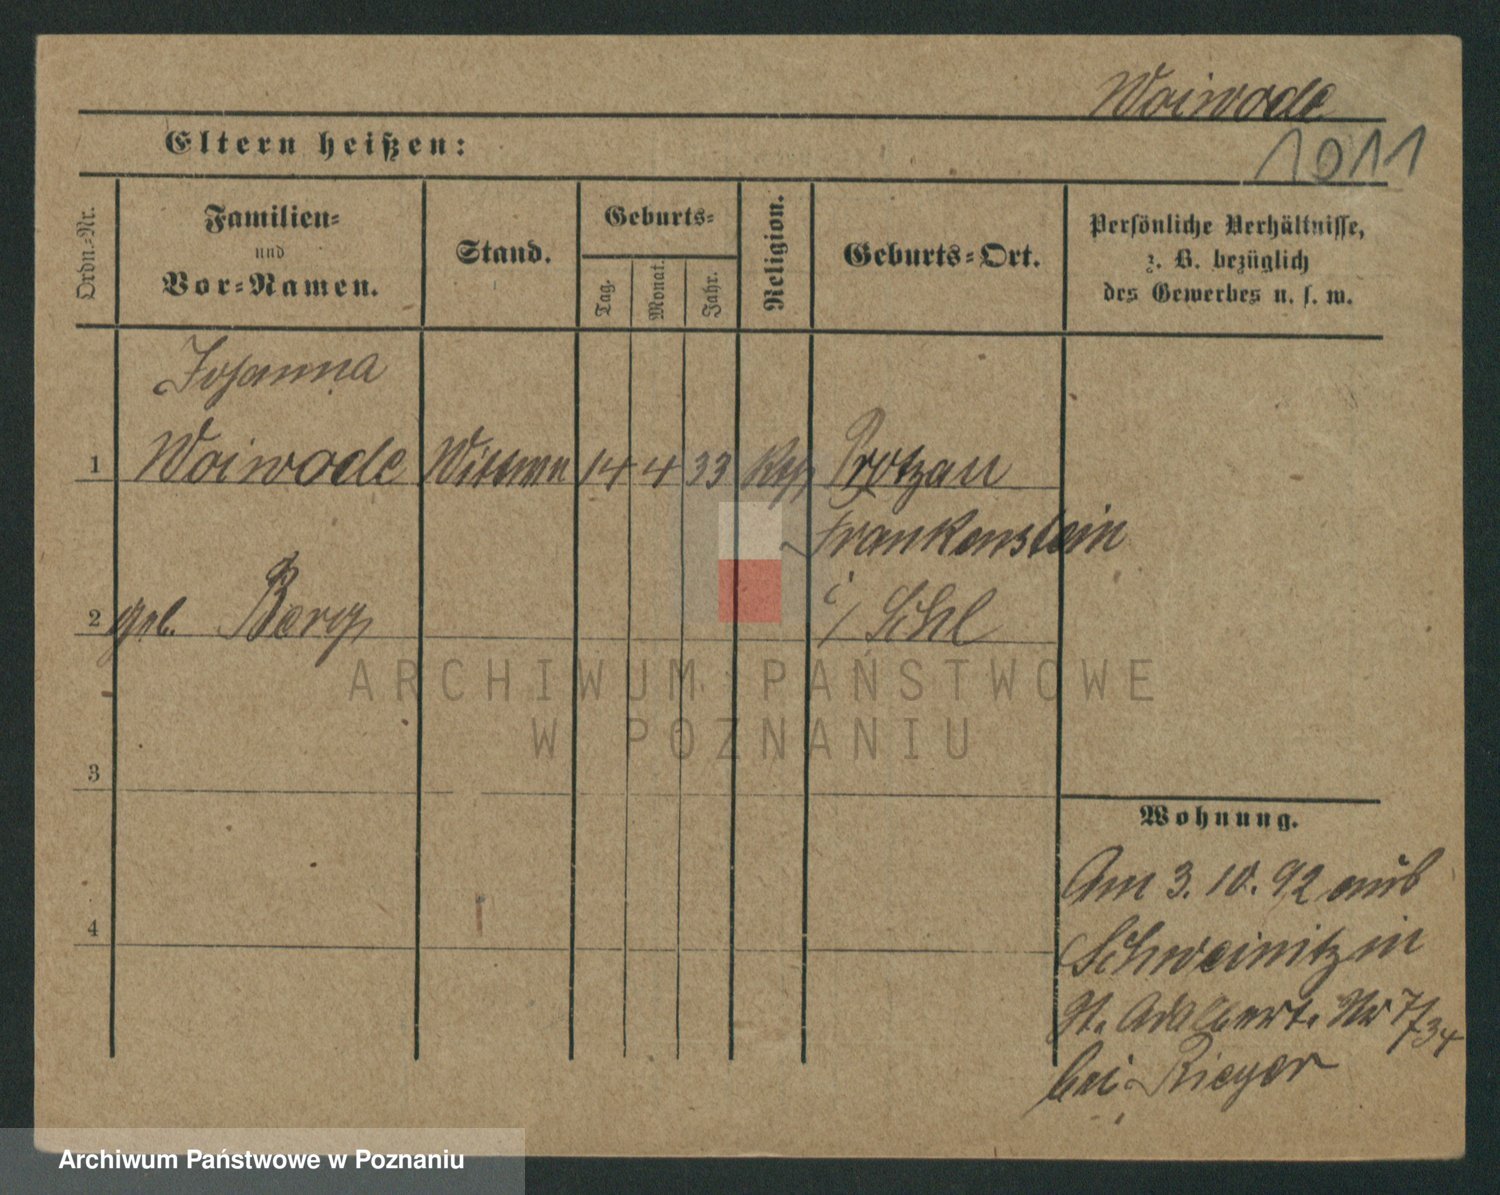 Woiwode
1011
Eltern heißen:
Ordn.-Nr.
Familien-
und
Vor-Namen.
Stand.
Geburts-
Tag.
Monat.
Jahr.
Religion.
Geburts-Ort.
Persönliche Verhältnisse,
z. B. bezüglich
des Gewerbes u. s. w.
Johanna
1 Woiwode Wittwe 14 4 33 Protzau
Frankenstein
2 geb. Berg i/ Schl
ARCHIWUM PAŃSTWOWE
W POZNANIU
3
Wohnung.
4
Am 3. 10. 92 aus
Schweinitz in
St. Adalbert. Nr 7/
34
bei Rieger
Archiwum Państwowe w Poznaniu